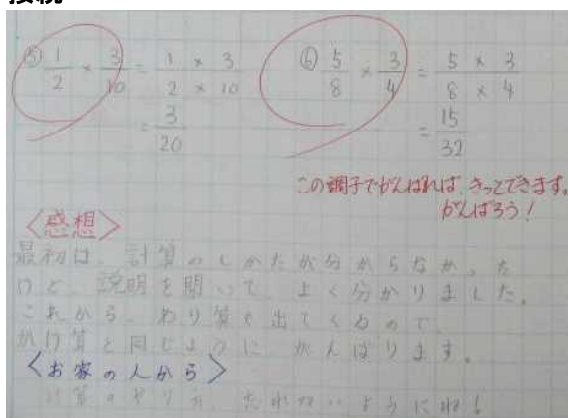 ⑤ 1/2 × 3/10 = 1 × 3 / 2 × 10
= 3/20
⑥ 5/8 × 3/4 = 5 × 3 / 8 × 4
= 15/32
この調子でがんばれば、きっとできます。
がんばろう！
〈感想〉
最初は、計算のしかたが分からなかった
けど、説明を聞いて、よく分かりました。
これから、わり算も出てくるので
かけ算と同じように、がんばります。
〈お家の人から〉
計算のやり方、忘れないようにね！